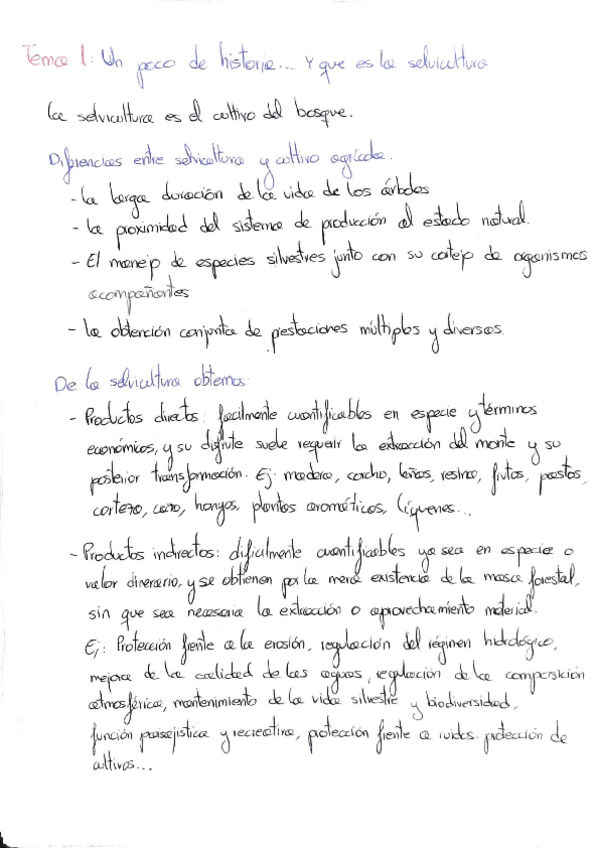 Tema 1: Un poco de historia... Y que es la selvicultura
La selvicultura es el cultivo del bosque.
Diferencias entre selvicultura y cultivo agrícola.
- La larga duración de la vida de los árboles
- La proximidad del sistema de producción al estado natural.
- El manejo de especies silvestres junto con su cortejo de organismos
acompañantes
- La obtención conjunta de prestaciones múltiples y diversas.
De la selvicultura obtemos:
- Productos directos: facilmente cuantificables en especie y términos
económicos, y su disfrute suele requerir la extracción del monte y su
posterior transformación. Ej: madera, corcho, leñas, resina, frutos, pastos,
corteza, caza, hongos, plantas aromáticas, líquenes...
- Productos indirectos: dificilmente cuantificables ya sea en especie o
valor dinerario, y se obtienen por la mera existencia de la masa forestal,
sin que sea necesaria la extracción o aprovechamiento material.
Ej: Protección frente a la erosión, regulación del régimen hidrológico,
mejora de la calidad de las aguas, regulación de la composición
atmosférica, mantenimiento de la vida silvestre y biodiversidad,
función paisajistica y recreativa, protección frente a ruidos, protección de
cultivos...